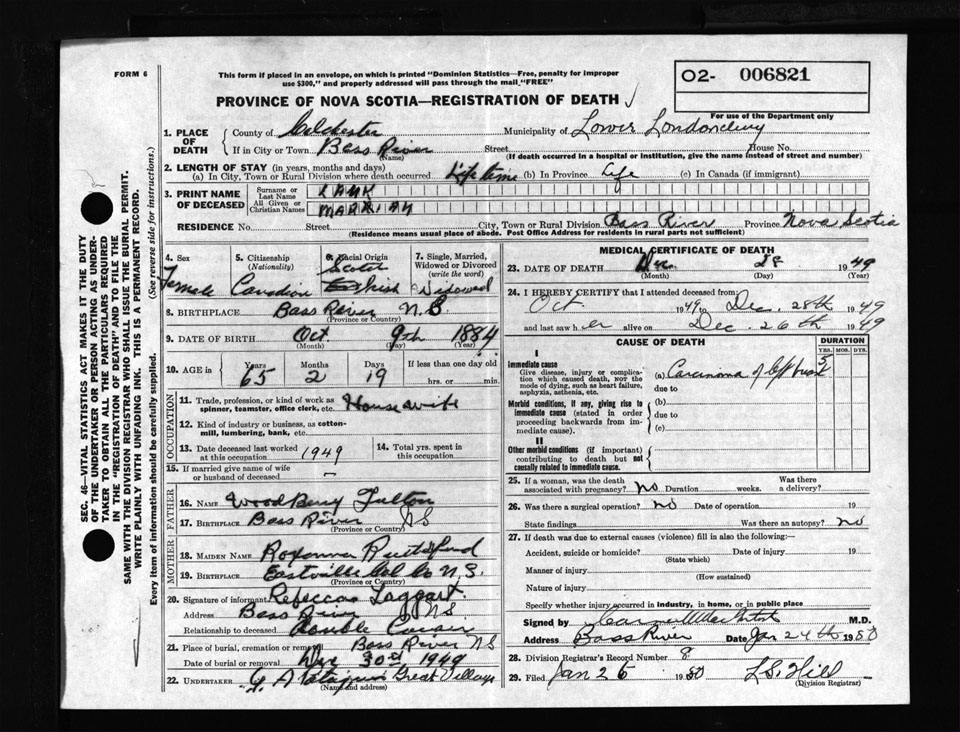 FORM 6
This form if placed in an envelope, on which is printed "Dominion Statistics—Free, penalty for improper
use $300," and properly addressed will pass through the mail "FREE"
O2- 006821
For use of the Department only
PROVINCE OF NOVA SCOTIA—REGISTRATION OF DEATH
1. PLACE OF DEATH
County of Colchester Municipality of Lower Londonderry
If in City or Town Bass River Street House No.
(Name) (If death occurred in a hospital or institution, give the name instead of street and number)
2. LENGTH OF STAY (in years, months and days)
(a) In City, Town or Rural Division where death occurred Life time (b) In Province Life (c) In Canada (if immigrant)
3. PRINT NAME OF DECEASED
Surname or Last Name
All Given or Christian Names MARRIAH
RESIDENCE No. Street City, Town or Rural Division Bass River Province Nova Scotia
(Residence means usual place of abode. Post Office Address for residents in rural parts not sufficient)
4. Sex Female
5. Citizenship (Nationality) Canadian
6. Racial Origin Scotch Irish
7. Single, Married, Widowed or Divorced (write the word) Widowed
8. BIRTHPLACE Bass River N.S.
(Province or Country)
9. DATE OF BIRTH Oct 9th 1884
(Month) (Day) (Year)
10. AGE in Years 65 Months 2 Days 19 If less than one day old
hrs. or min.
OCCUPATION
11. Trade, profession, or kind of work as
spinner, teamster, office clerk, etc. Housewife
12. Kind of industry or business, as cotton-
mill, lumbering, bank, etc.
13. Date deceased last worked at this occupation 1949
14. Total yrs. spent in this occupation
15. If married give name of wife
or husband of deceased —
FATHER
16. NAME Woodbury Fulton
17. BIRTHPLACE Bass River NS
(Province or Country)
MOTHER
18. MAIDEN NAME Roxanna Rutherford
19. BIRTHPLACE Eastville Col Co N.S.
(Province or Country)
20. Signature of informant Rebecca Taggart
Address Bass River NS
Relationship to deceased Double Cousin
21. Place of burial, cremation or removal Bass River NS
Date of burial or removal Dec 30st 1949
22. UNDERTAKER Great Village
(Name and address)
MEDICAL CERTIFICATE OF DEATH
23. DATE OF DEATH Dec. 28 1949
(Month) (Day) (Year)
24. I HEREBY CERTIFY that I attended deceased from:
Oct. 1949 to Dec. 28th 1949
and last saw her alive on Dec. 26th 1949
CAUSE OF DEATH DURATION
YRS. MOS. DYS.
I
Immediate cause
Give disease, injury or complica-
tion which caused death, not the
mode of dying, such as heart failure,
asphyxia, asthenia, etc.
(a) Carcinoma of left breast 5
due to
Morbid conditions, if any, giving rise to
immediate cause (stated in order
proceeding backwards from im-
mediate cause).
(b)
due to
(c)
II
Other morbid conditions (if important)
contributing to death but not
causally related to immediate cause.
25. If a woman, was the death associated with pregnancy? no Duration weeks. Was there a delivery?
26. Was there a surgical operation? no Date of operation 19
State findings Was there an autopsy? no
27. If death was due to external causes (violence) fill in also the following:—
Accident, suicide or homicide? Date of injury 19
(State which)
Manner of injury
(How sustained)
Nature of injury
Specify whether injury occurred in industry, in home, or in public place
Signed by M.D.
Address Bass River Date Jan 24th 1950
28. Division Registrar's Record Number 8
29. Filed Jan 26 1950 L.S. Hill
(Division Registrar)
SEC. 46—VITAL STATISTICS ACT MAKES IT THE DUTY
OF THE UNDERTAKER OR PERSON ACTING AS UNDER-
TAKER TO OBTAIN ALL THE PARTICULARS REQUIRED
IN THE "REGISTRATION OF DEATH" AND TO FILE THE
SAME WITH THE DIVISION REGISTRAR WHO SHALL ISSUE THE BURIAL PERMIT.
WRITE PLAINLY WITH UNFADING INK. THIS IS A PERMANENT RECORD.
Every item of information should be carefully supplied. (See reverse side for instructions.)